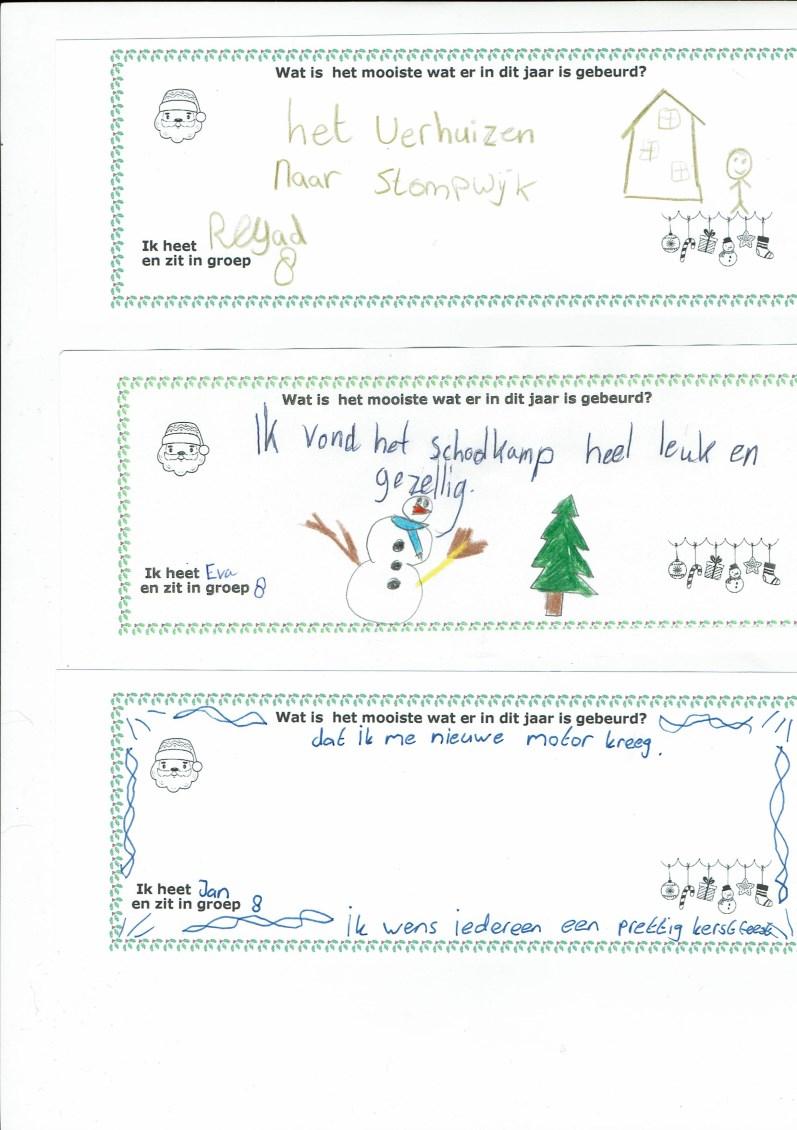 Wat is het mooiste wat er in dit jaar is gebeurd?
het Verhuizen
Naar Stompwijk
Ik heet Reyad
en zit in groep 8
Wat is het mooiste wat er in dit jaar is gebeurd?
Ik vond het schoolkamp heel leuk en
gezellig.
Ik heet Eva
en zit in groep 8
Wat is het mooiste wat er in dit jaar is gebeurd?
dat ik me nieuwe motor kreeg.
Ik heet Jan
en zit in groep 8
ik wens iedereen een prettig kerstfeest